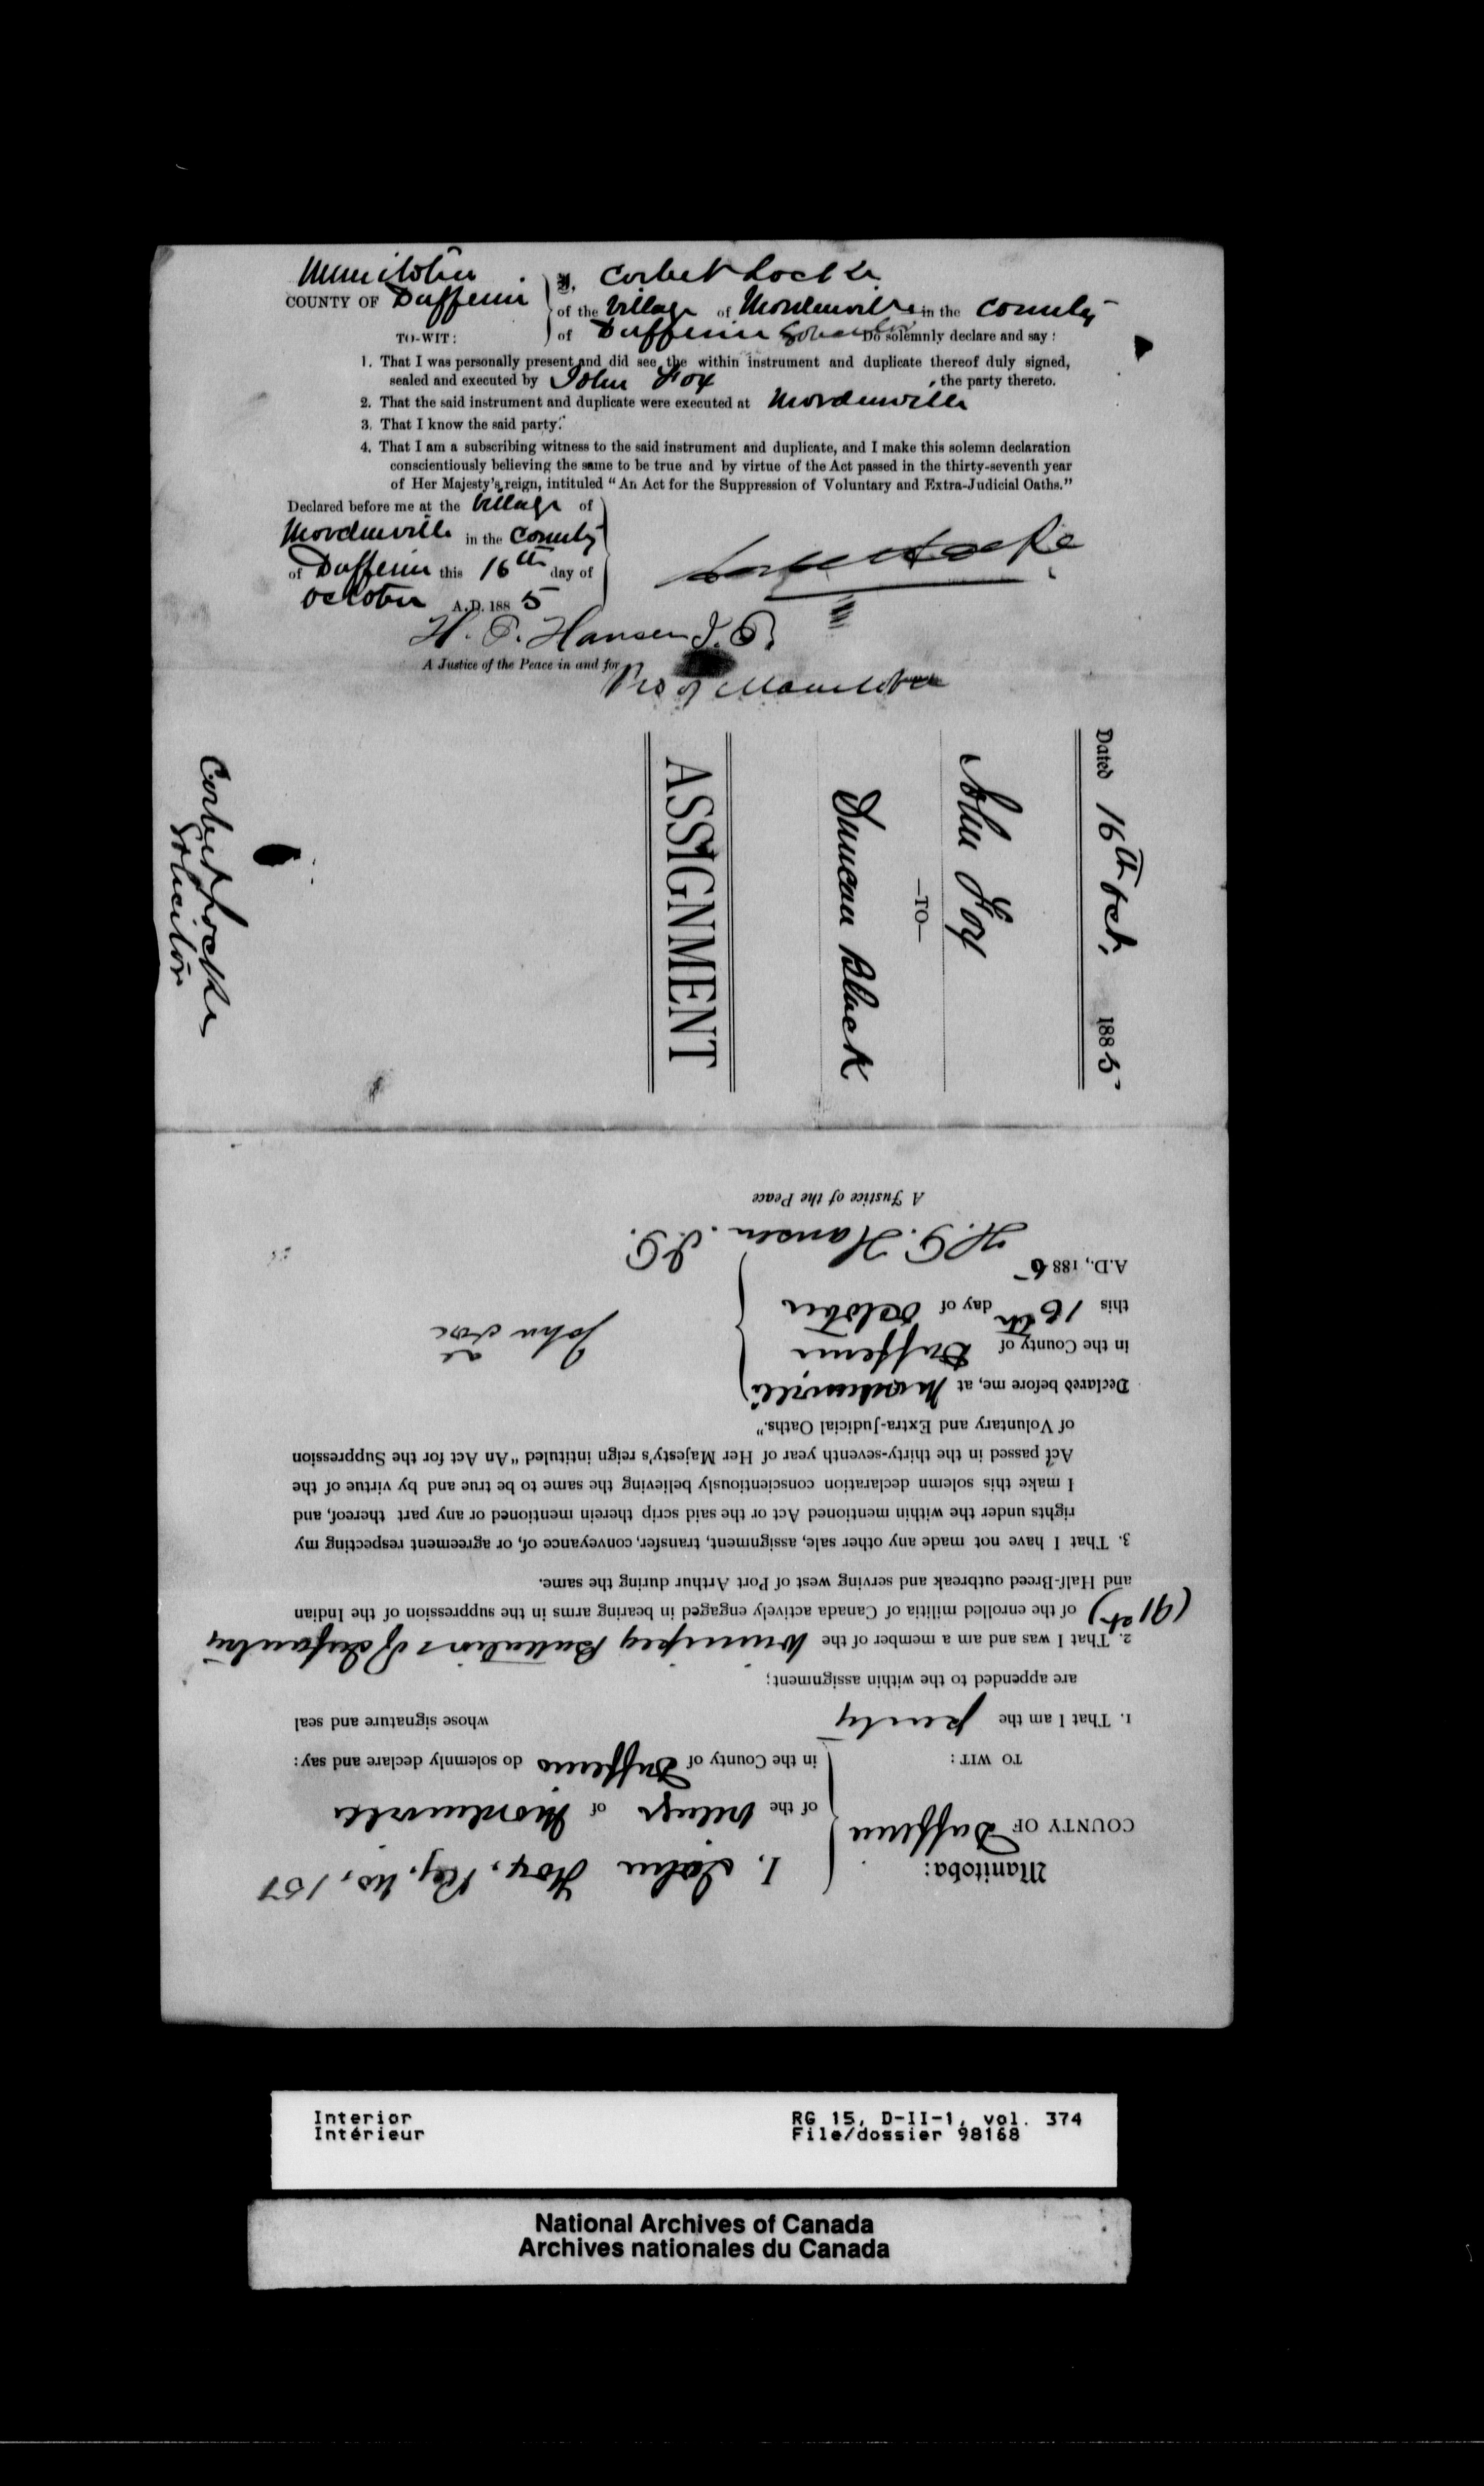 Manitoba
COUNTY OF Dufferin
TO-WIT:
I, Corbet Locke
of the Village of Mordenville in the County
of Dufferin Solicitor Do solemnly declare and say:
1. That I was personally present and did see the within instrument and duplicate thereof duly signed,
sealed and executed by John Fox , the party thereto.
2. That the said instrument and duplicate were executed at Mordenville
3. That I know the said party.
4. That I am a subscribing witness to the said instrument and duplicate, and I make this solemn declaration
conscientiously believing the same to be true and by virtue of the Act passed in the thirty-seventh year
of Her Majesty's reign, intituled "An Act for the Suppression of Voluntary and Extra-Judicial Oaths."
Declared before me at the Village of
Mordenville in the County
of Dufferin this 16th day of
October A.D. 188 5
Corbet Locke
H. P. Hansen J. P.
A Justice of the Peace in and for
Pro of Manitoba
Dated 16th Oct, 188 5
John Fox
—TO—
Duncan Black
ASSIGNMENT
Corbet Locke
Solicitor
Manitoba:
COUNTY OF Dufferin
TO WIT:
I, John Fox, Reg. No, 151
of the Village of Mordenville
in the County of Dufferin do solemnly declare and say:
1. That I am the party whose signature and seal
are appended to the within assignment;
2. That I was and am a member of the Winnipeg Battalion of Infantry
(91st) of the enrolled militia of Canada actively engaged in bearing arms in the suppression of the Indian
and Half-Breed outbreak and serving west of Port Arthur during the same.
3. That I have not made any other sale, assignment, transfer, conveyance of, or agreement respecting my
rights under the within mentioned Act or the said scrip therein mentioned or any part thereof, and
I make this solemn declaration conscientiously believing the same to be true and by virtue of the
Act passed in the thirty-seventh year of Her Majesty's reign intituled "An Act for the Suppression
of Voluntary and Extra-Judicial Oaths."
Declared before me, at Mordenville
in the County of Dufferin
this 16th day of October
A.D., 188 5
John Fox
H. P. Hansen. J. P.
A Justice of the Peace
Interior
Intérieur
RG 15, D-II-1, vol. 374
File/dossier 98168
National Archives of Canada
Archives nationales du Canada